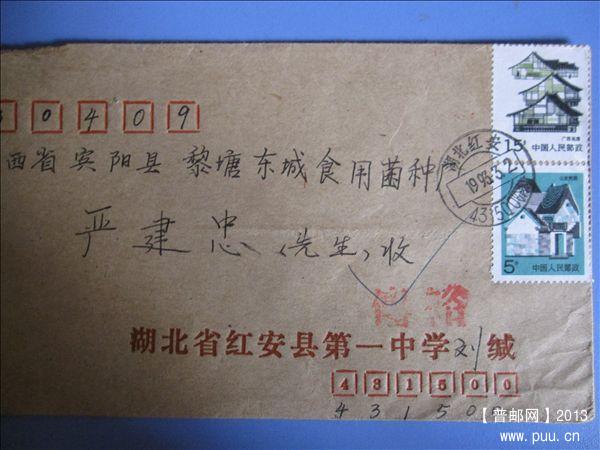 30409
西省宾阳县 黎塘东城食用菌种厂
严建忠(先生)收
广西民居
15分 中国人民邮政
湖北红安
山东民居
5分 中国人民邮政
湖北省红安县第一中学刘缄
431500
43150
【普邮网】2013
www.puu.cn